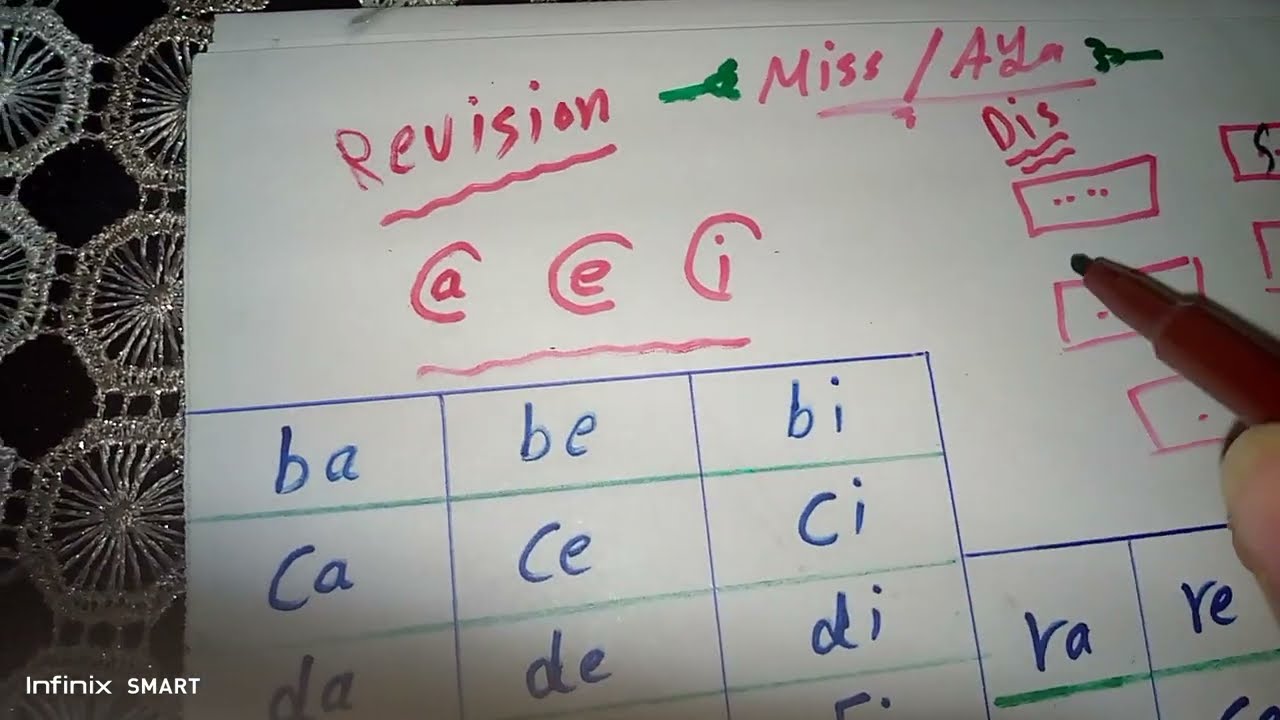 Miss / Aya
Revision
Dis
a e i
ba be bi
ca ce ci
da de di
ra re
Infinix SMART